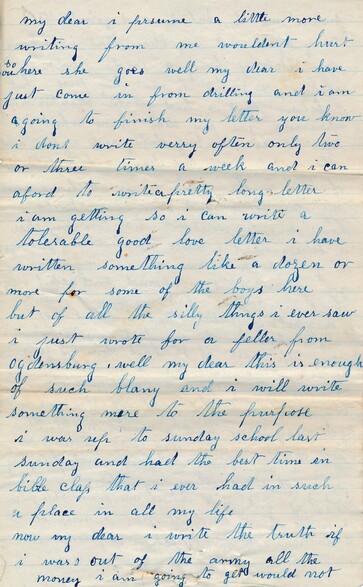 my dear i prsume a little more
writing from me wouldent hurt
so here she goes well my dear i have
just come in from drilling and i am
agoing to finish my letter you know
i dont write verry often only two
or three times a week and i can
aford to write a pretty long letter
i am getting so i can write a
tolerable good love letter i have
written something like a dozen or
more for some of the boys here
but of all the silly things i ever saw
i just wrote for a feller from
ogdensburg. well my dear this is enough
of such blany and i will write
something more to the purpose
i was up to sunday school last
sunday and had the best time in
bible class that i ever had in such
a place in all my life
now my dear i write the truth if
i was out of the army all the
money i am going to get would not